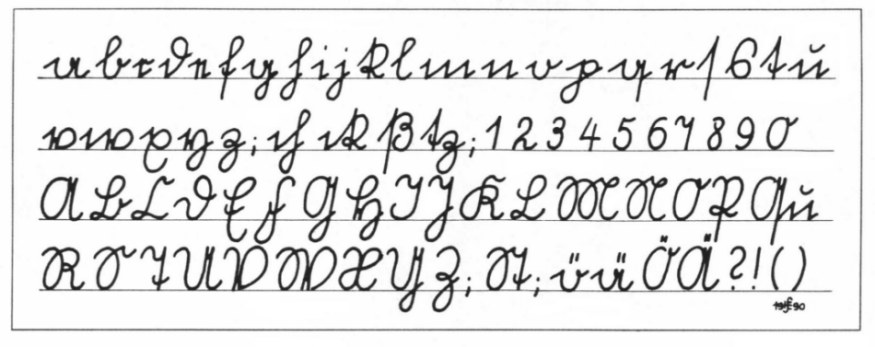 a b c d e f g h i j k l m n o p q r ſ s t ŭ
v w x y z ; ch ck ß tz ; 1 2 3 4 5 6 7 8 9 0
A B C D E F G H I J K L M N O P Qŭ
R S T U V W X Y Z ; St ; ö ä Ö Ä ? ! ( )